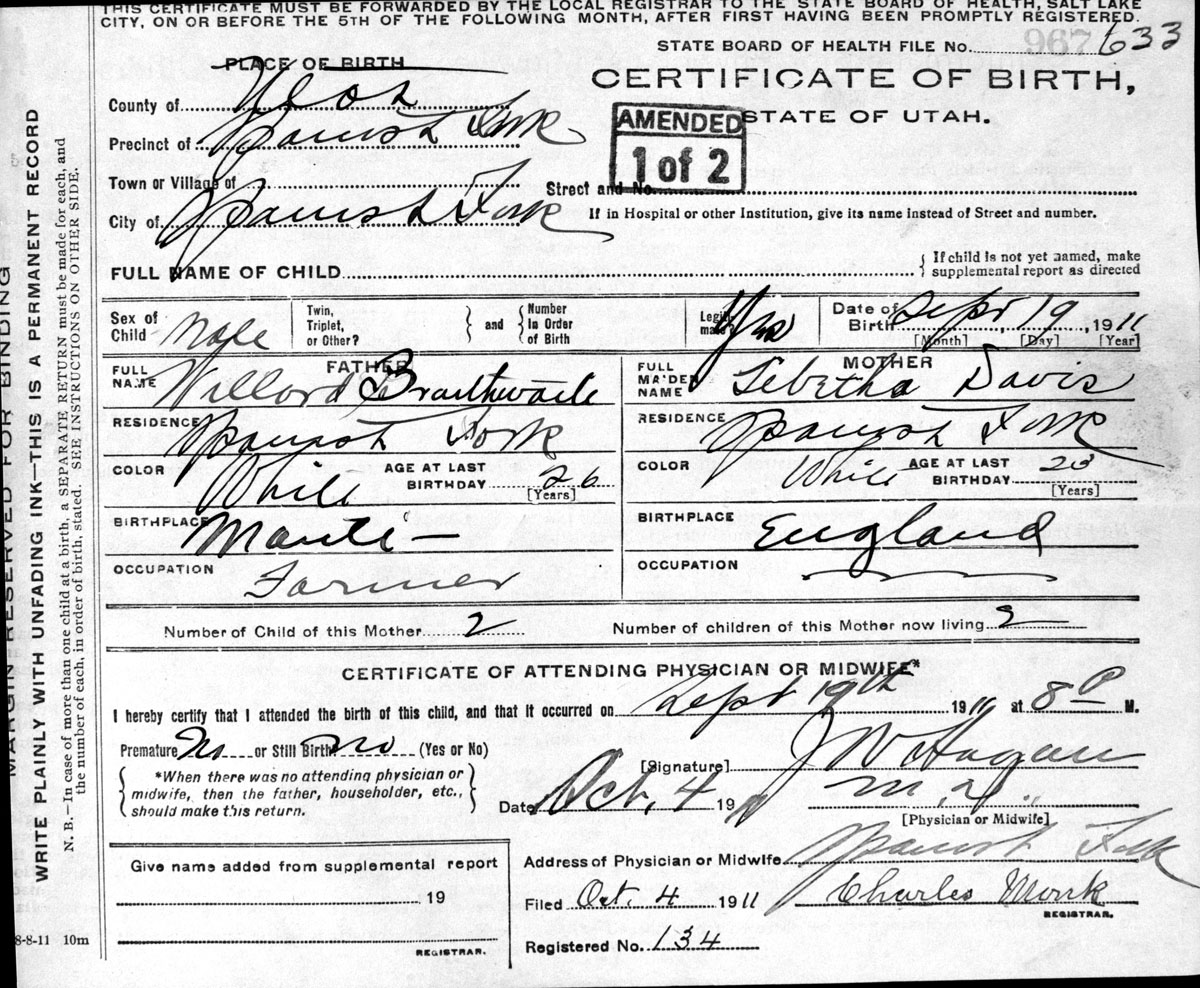 THIS CERTIFICATE MUST BE FORWARDED BY THE LOCAL REGISTRAR TO THE STATE BOARD OF HEALTH, SALT LAKE
CITY, ON OR BEFORE THE 5TH OF THE FOLLOWING MONTH, AFTER FIRST HAVING BEEN PROMPTLY REGISTERED.
STATE BOARD OF HEALTH FILE No. 967 633
PLACE OF BIRTH
CERTIFICATE OF BIRTH,
STATE OF UTAH.
AMENDED
1 of 2
County of Utah
Precinct of Spanish Fork
Town or Village of
Street and No.
City of Spanish Fork
If in Hospital or other Institution, give its name instead of Street and number.
FULL NAME OF CHILD
If child is not yet named, make
supplemental report as directed
Sex of Child Male
Twin, Triplet, or Other?
and
Number in Order of Birth
Legitimate? Yes
Date of Birth Sept 19, 1911
[Month] [Day] [Year]
FATHER
FULL NAME Willard Braithwaite
RESIDENCE Spanish Fork
COLOR White AGE AT LAST BIRTHDAY 26
[Years]
BIRTHPLACE Manti
OCCUPATION Farmer
MOTHER
FULL MAIDEN NAME Davis
RESIDENCE Spanish Fork
COLOR White AGE AT LAST BIRTHDAY
[Years]
BIRTHPLACE England
OCCUPATION
Number of Child of this Mother 2
Number of children of this Mother now living 2
CERTIFICATE OF ATTENDING PHYSICIAN OR MIDWIFE*
I hereby certify that I attended the birth of this child, and that it occurred on Sept 19th 1911 at 8 P M.
Premature No or Still Birth No (Yes or No)
[Signature] J W Hagan
M.D.
[Physician or Midwife]
*When there was no attending physician or
midwife, then the father, householder, etc.,
should make this return.
Date Oct, 4 1911
Give name added from supplemental report
19
REGISTRAR.
Address of Physician or Midwife Spanish Fork
Filed Oct. 4 1911 Charles Monk
REGISTRAR.
Registered No. 134
8-8-11 10m
MARGIN RESERVED FOR BINDING
WRITE PLAINLY WITH UNFADING INK—THIS IS A PERMANENT RECORD
N. B.—In case of more than one child at a birth, a SEPARATE RETURN must be made for each, and
the number of each, in order of birth, stated. SEE INSTRUCTIONS ON OTHER SIDE.